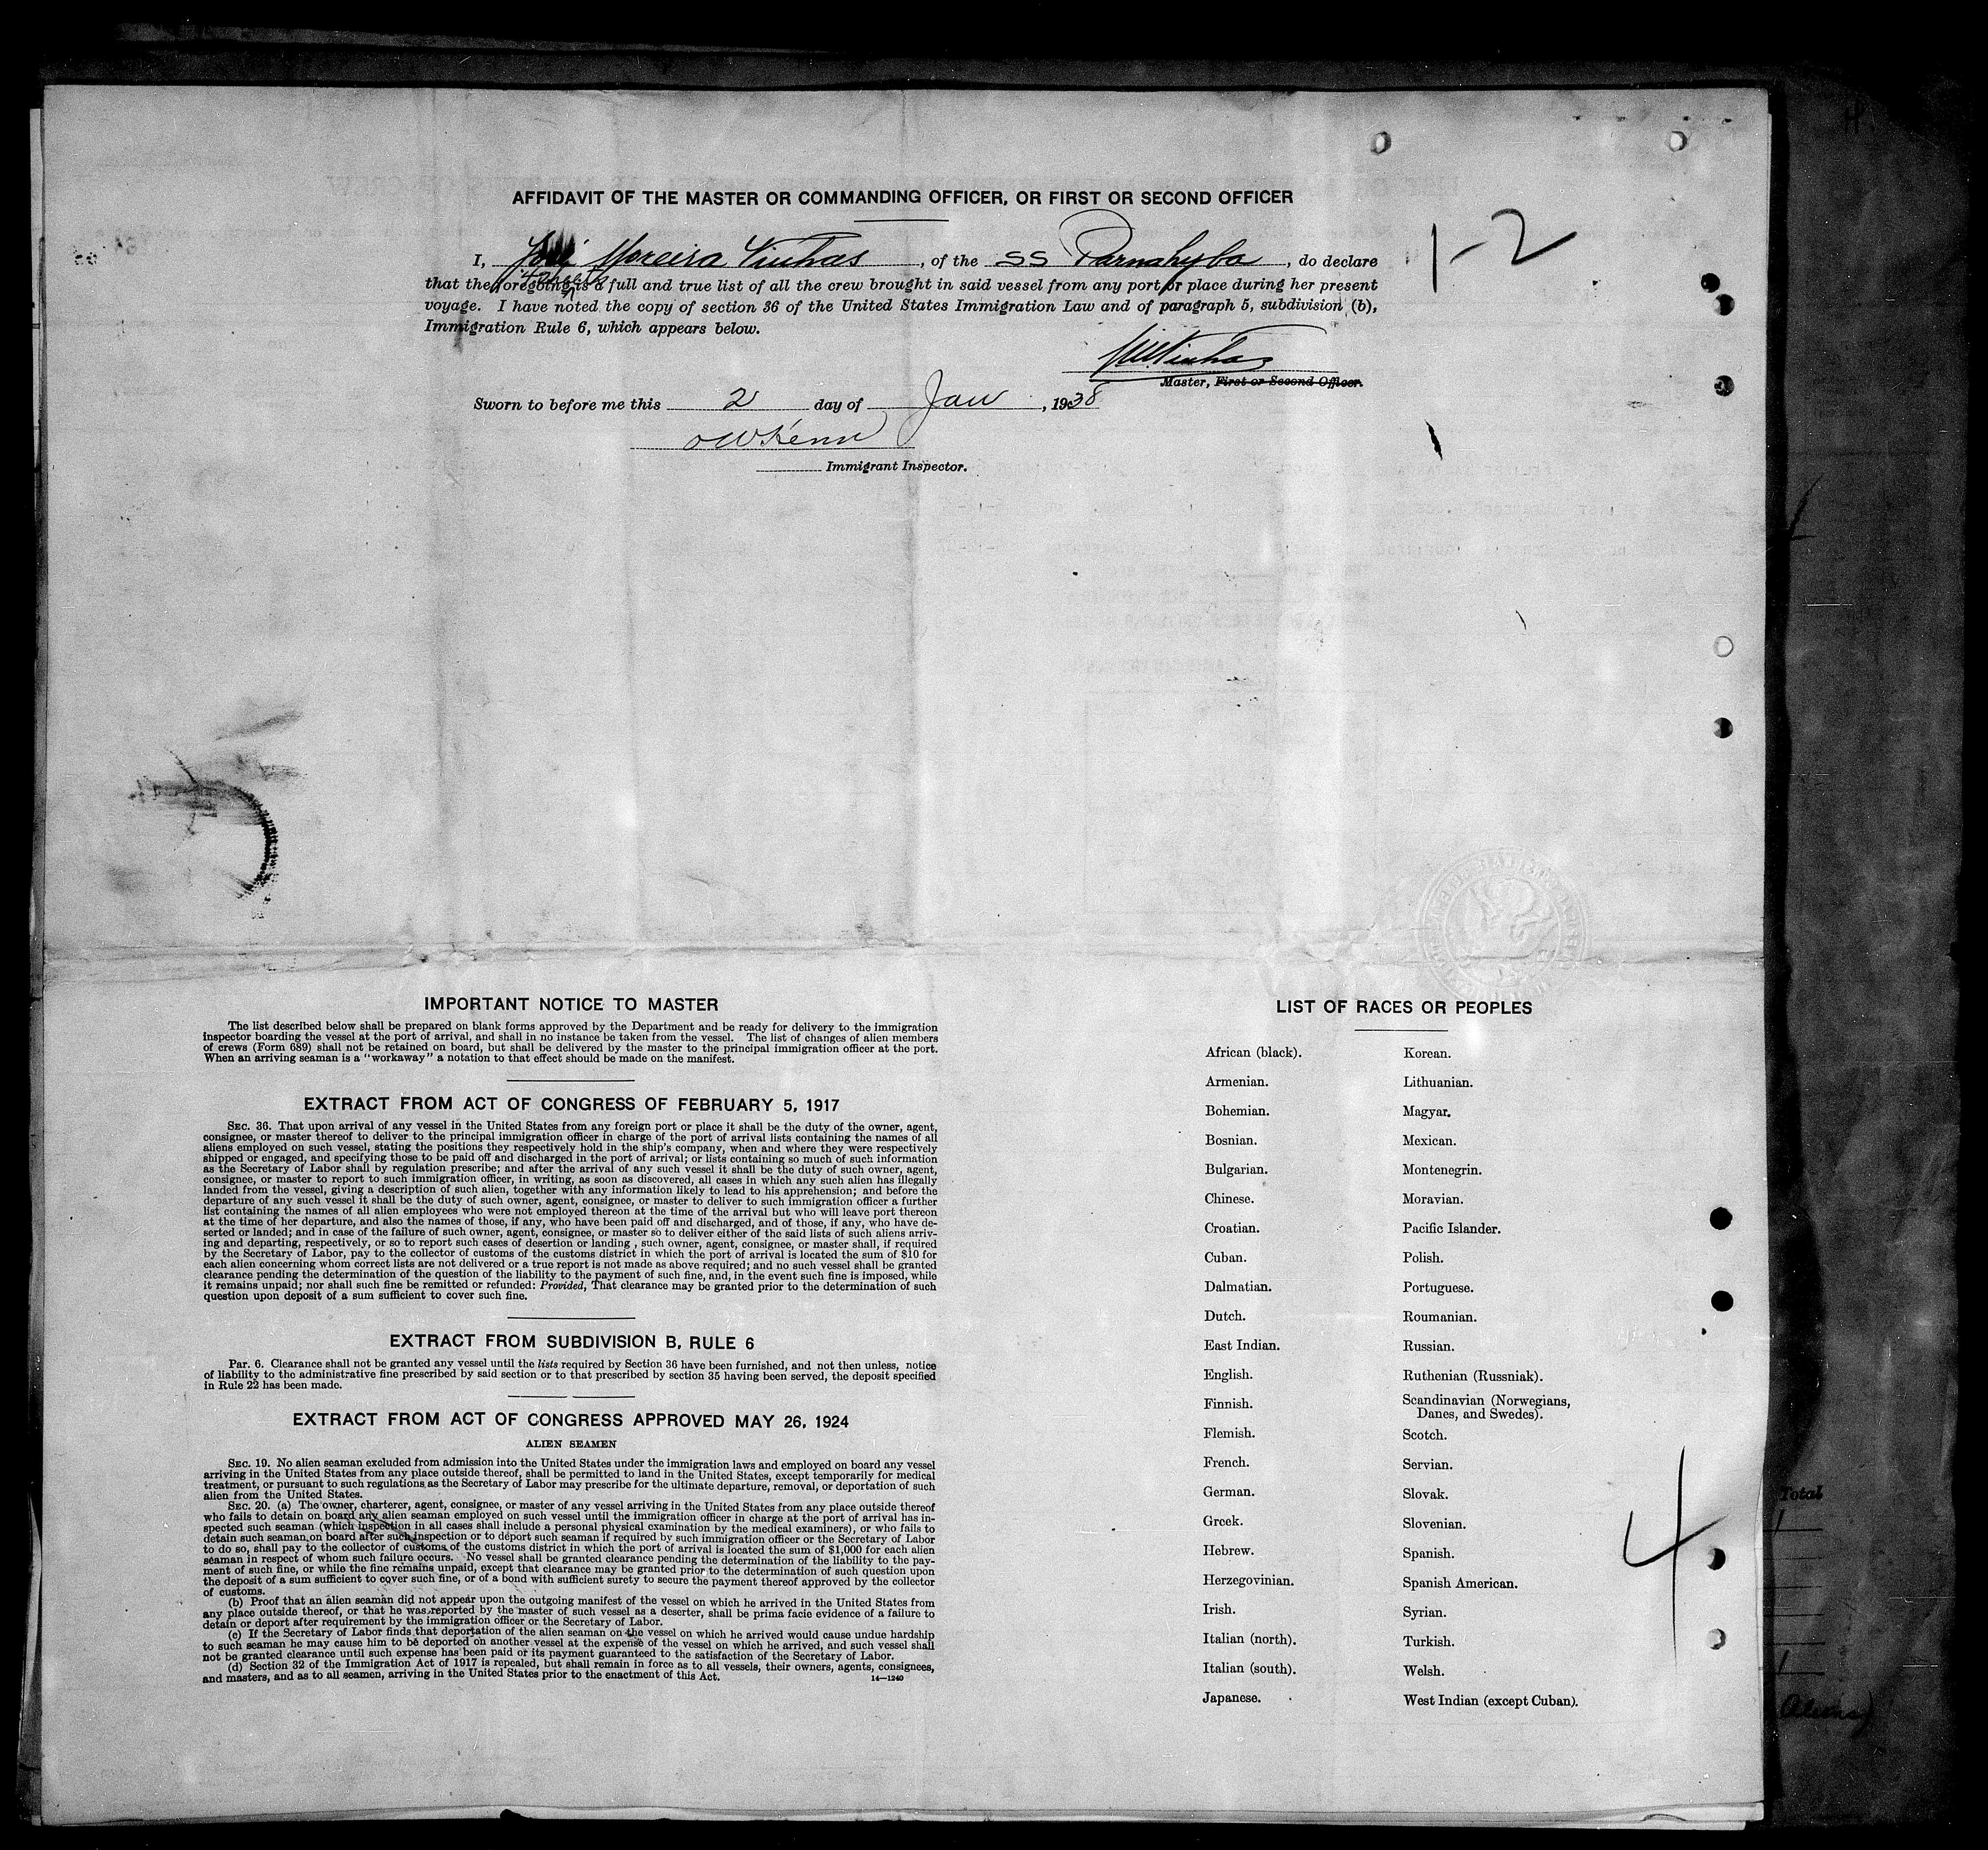 AFFIDAVIT OF THE MASTER OR COMMANDING OFFICER, OR FIRST OR SECOND OFFICER
1-2
I, José Moreira Vinhas, of the SS Parnahyba, do declare
4 sheets
that the foregoing is a full and true list of all the crew brought in said vessel from any port or place during her present
voyage. I have noted the copy of section 36 of the United States Immigration Law and of paragraph 5, subdivision (b),
Immigration Rule 6, which appears below.
Master, First or Second Officer.
Sworn to before me this 2 day of Jan, 1938
Immigrant Inspector.
IMPORTANT NOTICE TO MASTER
The list described below shall be prepared on blank forms approved by the Department and be ready for delivery to the immigration
inspector boarding the vessel at the port of arrival, and shall in no instance be taken from the vessel. The list of changes of alien members
of crews (Form 689) shall not be retained on board, but shall be delivered by the master to the principal immigration officer at the port.
When an arriving seaman is a "workaway" a notation to that effect should be made on the manifest.
EXTRACT FROM ACT OF CONGRESS OF FEBRUARY 5, 1917
SEC. 36. That upon arrival of any vessel in the United States from any foreign port or place it shall be the duty of the owner, agent,
consignee, or master thereof to deliver to the principal immigration officer in charge of the port of arrival lists containing the names of all
aliens employed on such vessel, stating the positions they respectively hold in the ship's company, when and where they were respectively
shipped or engaged, and specifying those to be paid off and discharged in the port of arrival; or lists containing so much of such information
as the Secretary of Labor shall by regulation prescribe; and after the arrival of any such vessel it shall be the duty of such owner, agent,
consignee, or master to report to such immigration officer, in writing, as soon as discovered, all cases in which any such alien has illegally
landed from the vessel, giving a description of such alien, together with any information likely to lead to his apprehension; and before the
departure of any such vessel it shall be the duty of such owner, agent, consignee, or master to deliver to such immigration officer a further
list containing the names of all alien employees who were not employed thereon at the time of the arrival but who will leave port thereon
at the time of her departure, and also the names of those, if any, who have been paid off and discharged, and of those, if any, who have de-
serted or landed; and in case of the failure of such owner, agent, consignee, or master so to deliver either of the said lists of such aliens arriv-
ing and departing, respectively, or so to report such cases of desertion or landing , such owner, agent, consignee, or master shall, if required
by the Secretary of Labor, pay to the collector of customs of the customs district in which the port of arrival is located the sum of $10 for
each alien concerning whom correct lists are not delivered or a true report is not made as above required; and no such vessel shall be granted
clearance pending the determination of the question of the liability to the payment of such fine, and, in the event such fine is imposed, while
it remains unpaid; nor shall such fine be remitted or refunded: Provided, That clearance may be granted prior to the determination of such
question upon deposit of a sum sufficient to cover such fine.
EXTRACT FROM SUBDIVISION B, RULE 6
Par. 6. Clearance shall not be granted any vessel until the lists required by Section 36 have been furnished, and not then unless, notice
of liability to the administrative fine prescribed by said section or to that prescribed by section 35 having been served, the deposit specified
in Rule 22 has been made.
EXTRACT FROM ACT OF CONGRESS APPROVED MAY 26, 1924
ALIEN SEAMEN
SEC. 19. No alien seaman excluded from admission into the United States under the immigration laws and employed on board any vessel
arriving in the United States from any place outside thereof, shall be permitted to land in the United States, except temporarily for medical
treatment, or pursuant to such regulations as the Secretary of Labor may prescribe for the ultimate departure, removal, or deportation of such
alien from the United States.
SEC. 20. (a) The owner, charterer, agent, consignee, or master of any vessel arriving in the United States from any place outside thereof
who fails to detain on board any alien seaman employed on such vessel until the immigration officer in charge at the port of arrival has in-
spected such seaman (which inspection in all cases shall include a personal physical examination by the medical examiners), or who fails to
detain such seaman on board after such inspection or to deport such seaman if required by such immigration officer or the Secretary of Labor
to do so, shall pay to the collector of customs of the customs district in which the port of arrival is located the sum of $1,000 for each alien
seaman in respect of whom such failure occurs. No vessel shall be granted clearance pending the determination of the liability to the pay-
ment of such fine, or while the fine remains unpaid, except that clearance may be granted prior to the determination of such question upon
the deposit of a sum sufficient to cover such fine, or of a bond with sufficient surety to secure the payment thereof approved by the collector
of customs.
(b) Proof that an alien seaman did not appear upon the outgoing manifest of the vessel on which he arrived in the United States from
any place outside thereof, or that he was reported by the master of such vessel as a deserter, shall be prima facie evidence of a failure to
detain or deport after requirement by the immigration officer or the Secretary of Labor.
(c) If the Secretary of Labor finds that deportation of the alien seaman on the vessel on which he arrived would cause undue hardship
to such seaman he may cause him to be deported on another vessel at the expense of the vessel on which he arrived, and such vessel shall
not be granted clearance until such expense has been paid or its payment guaranteed to the satisfaction of the Secretary of Labor.
(d) Section 32 of the Immigration Act of 1917 is repealed, but shall remain in force as to all vessels, their owners, agents, consignees,
and masters, and as to all seamen, arriving in the United States prior to the enactment of this Act.
14—1240
LIST OF RACES OR PEOPLES
African (black).
Armenian.
Bohemian.
Bosnian.
Bulgarian.
Chinese.
Croatian.
Cuban.
Dalmatian.
Dutch.
East Indian.
English.
Finnish.
Flemish.
French.
German.
Greek.
Hebrew.
Herzegovinian.
Irish.
Italian (north).
Italian (south).
Japanese.
Korean.
Lithuanian.
Magyar.
Mexican.
Montenegrin.
Moravian.
Pacific Islander.
Polish.
Portuguese.
Roumanian.
Russian.
Ruthenian (Russniak).
Scandinavian (Norwegians,
Danes, and Swedes).
Scotch.
Servian.
Slovak.
Slovenian.
Spanish.
Spanish American.
Syrian.
Turkish.
Welsh.
West Indian (except Cuban).
4
Total